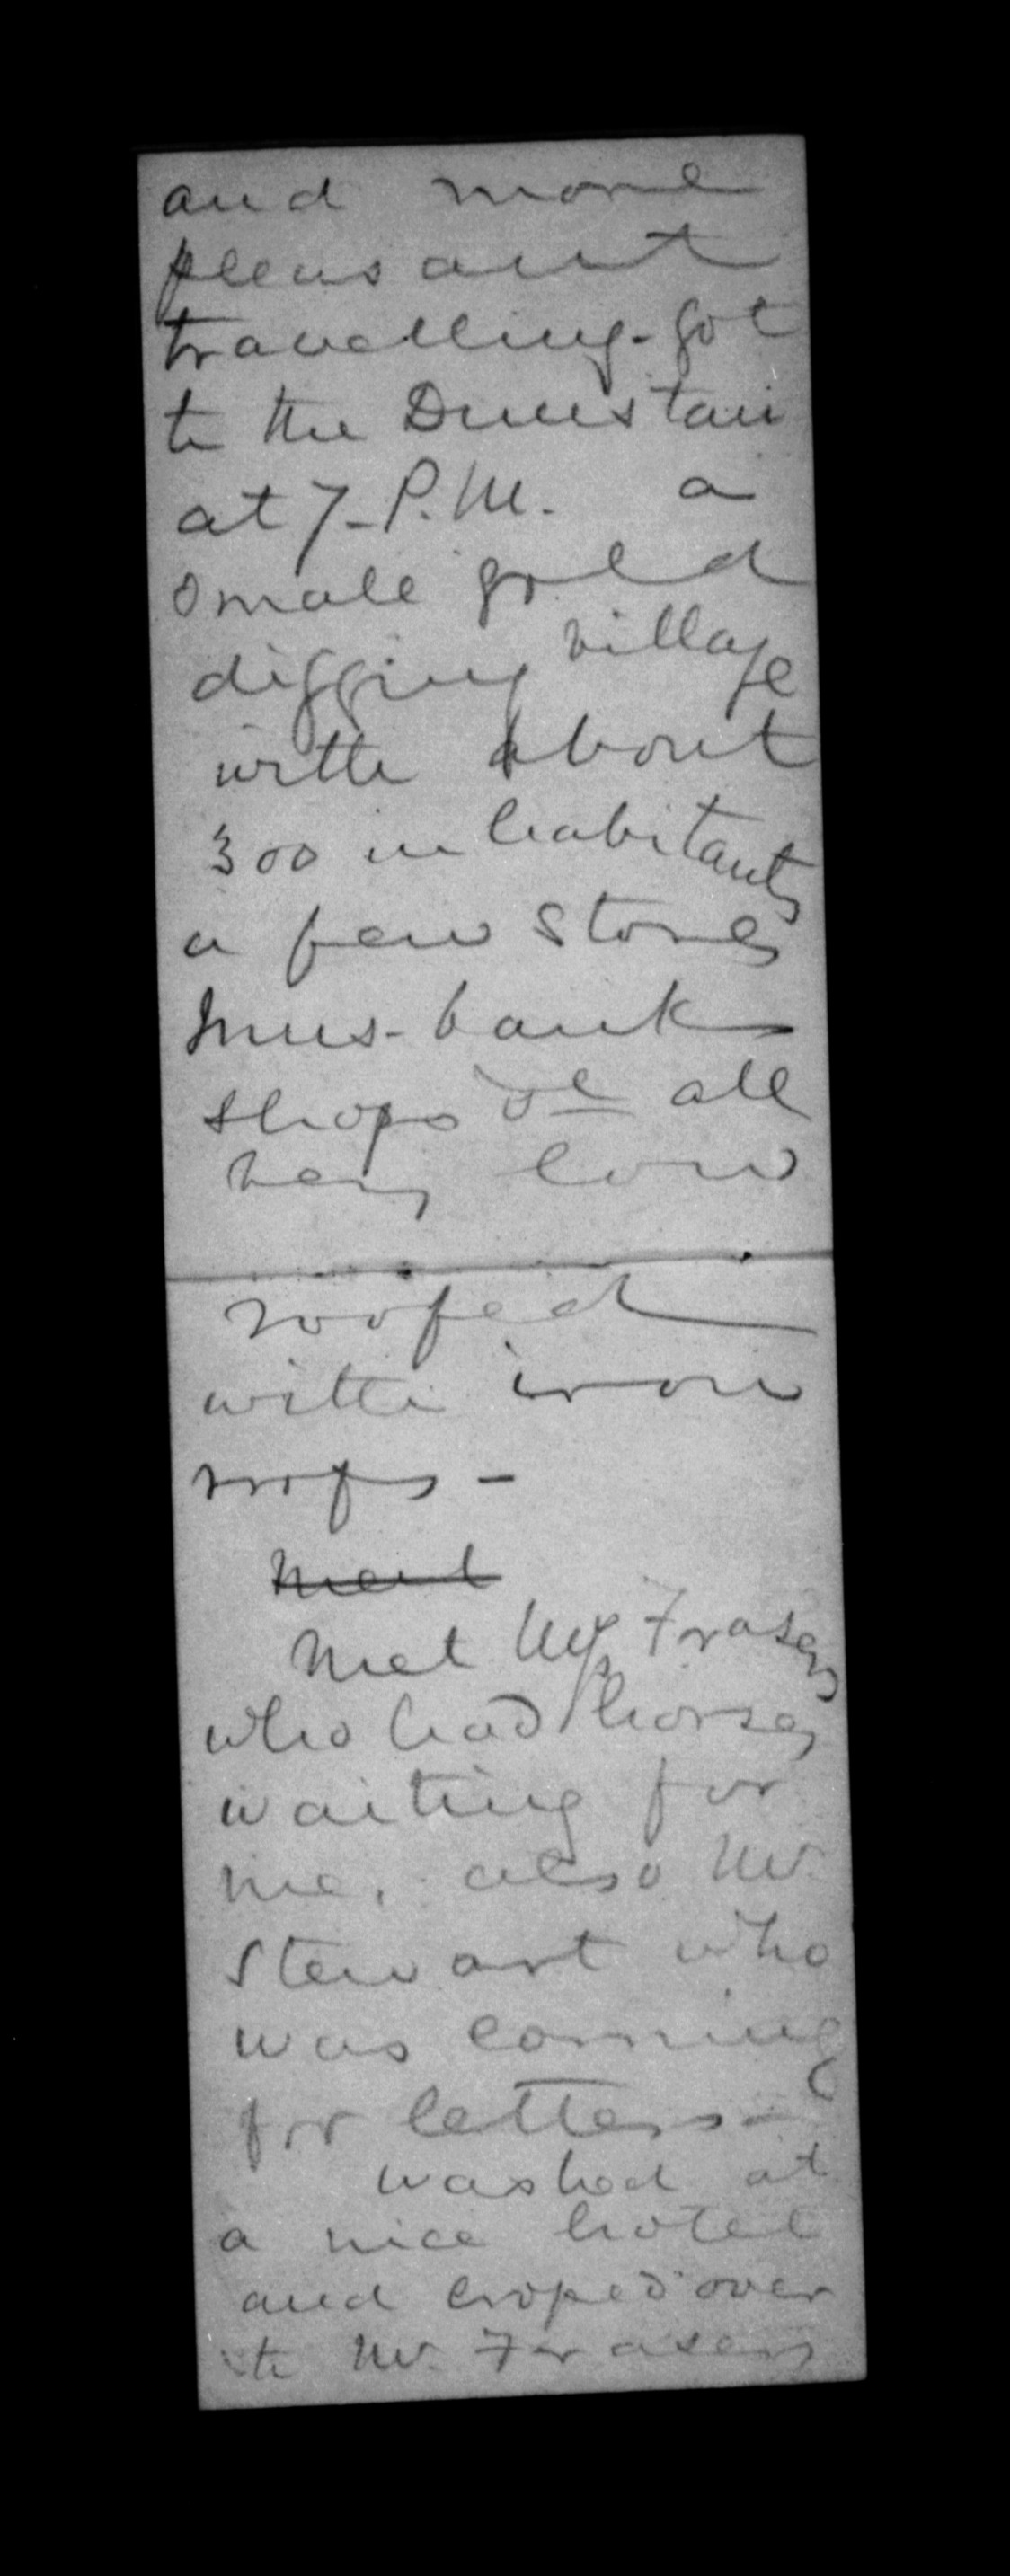 and more
pleasant
travelling - got
to the Dunstan
at 7 - P.M. a
small gold
digging village
with about
300 inhabitants
a few stores
Inns - bank
shops &c all
very low
roofed
with iron
roofs -
Met Mr Frasers
who had horses
waiting for
me, also Mr.
Stewart who
was coming
for letters -
washed at
a nice hotel
and croped over
to Mr. Frasers